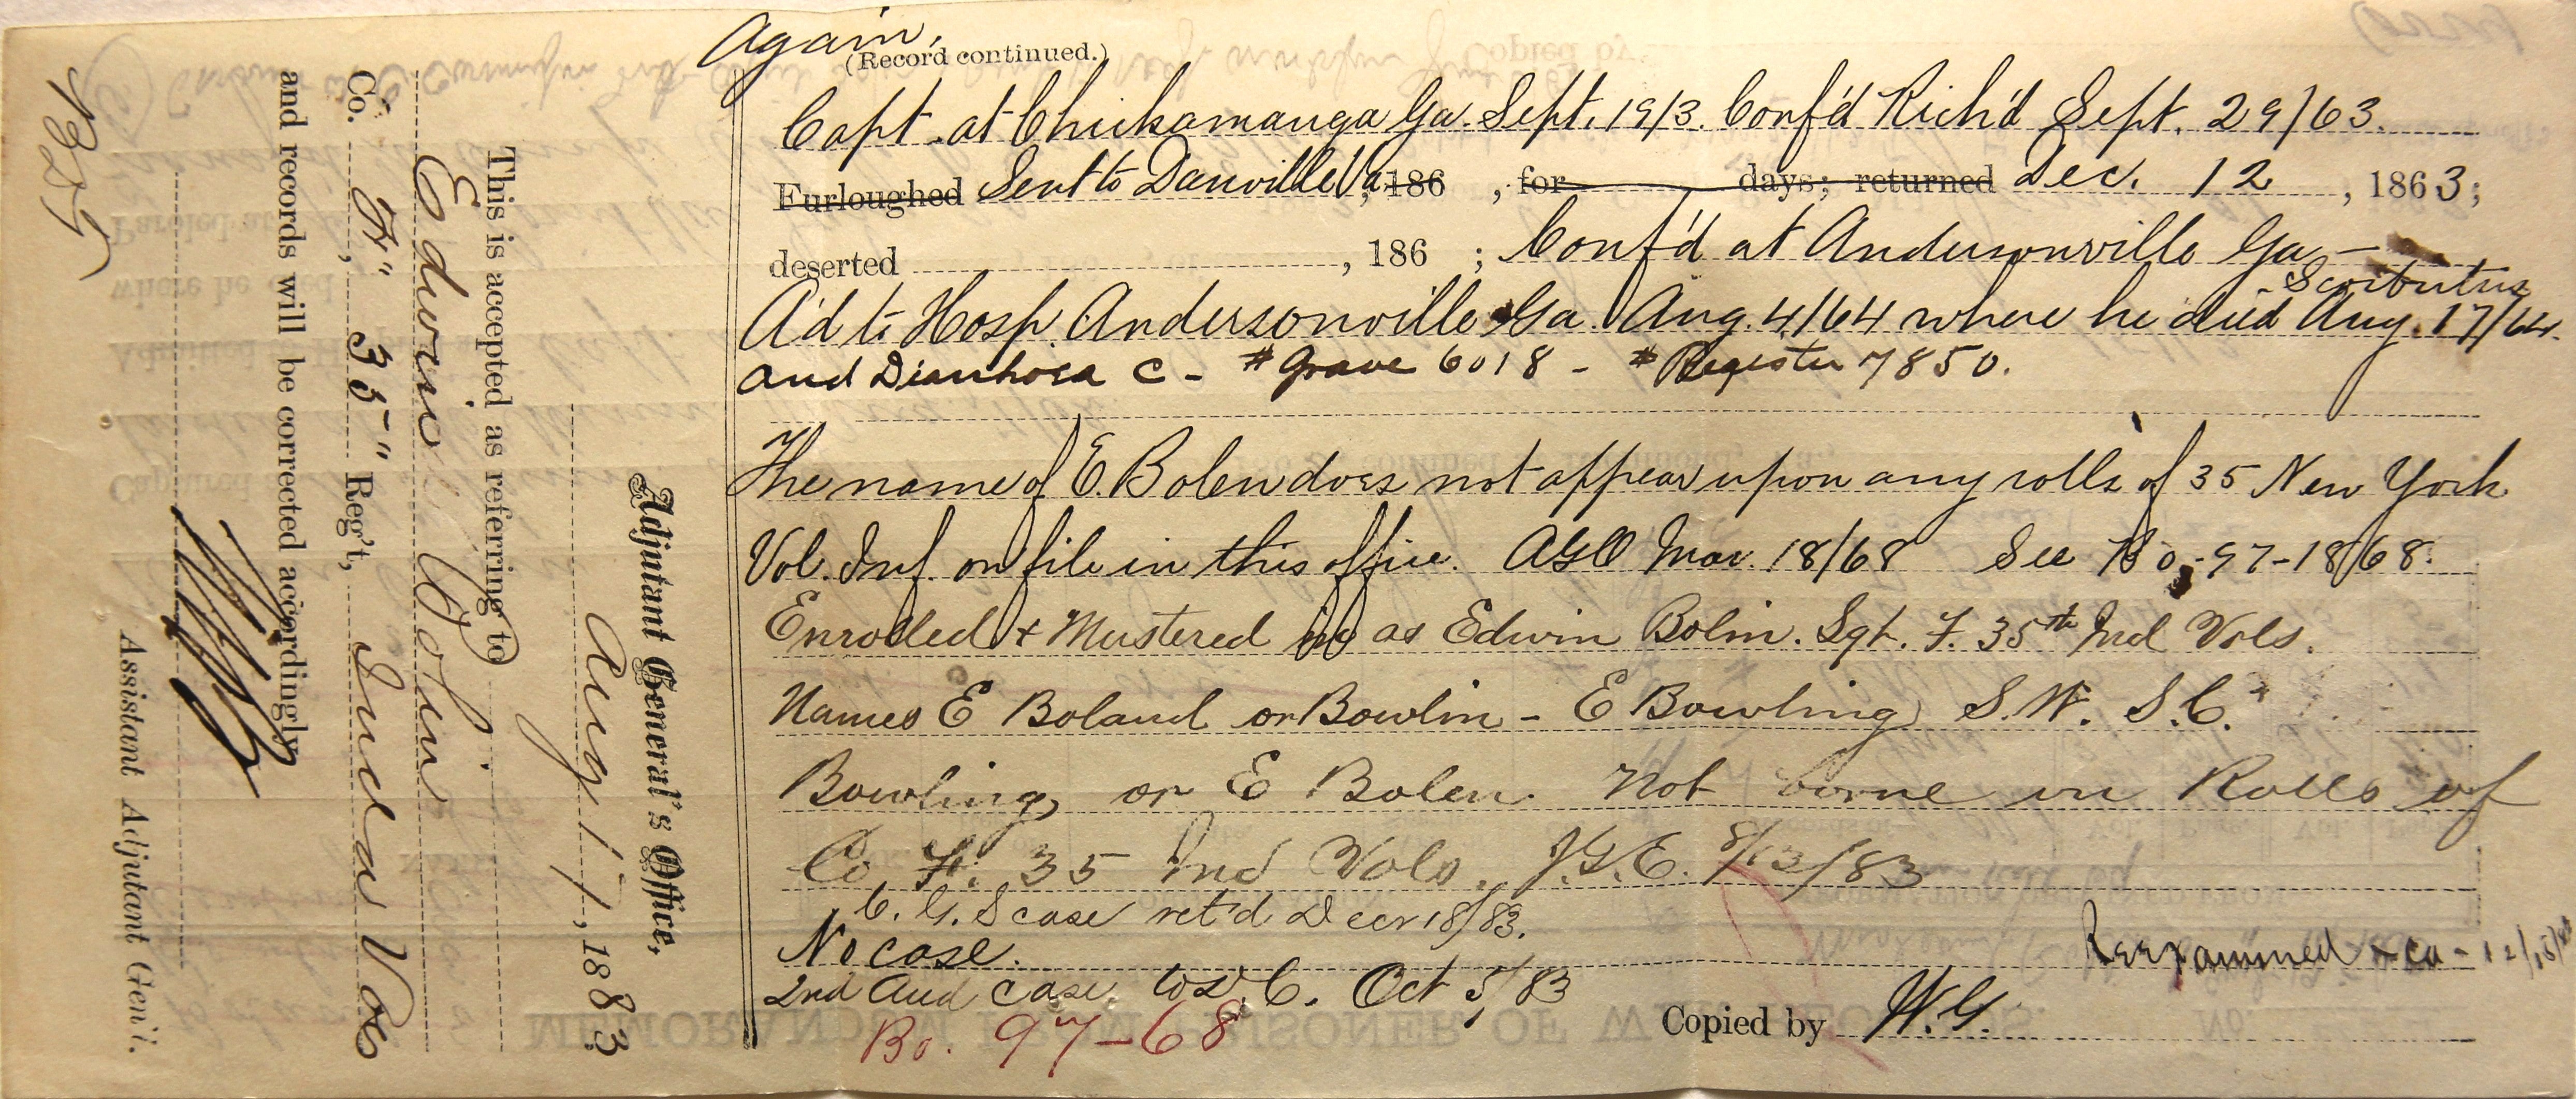 Again,
(Record continued.)
Capt. at Chickamauga Ga. Sept. 19/3. Conf'd Rich'd Sept. 29/63.
Furloughed Sent to Danville Va, 186 , for days; returned Dec. 12 , 1863;
deserted , 186 ; Conf'd at Andersonville Ga –
Scorbutus
A'd to Hosp. Andersonville Ga Aug. 4/64 where he died Aug. 17/64.
and Diarrhoea C - # Grave 6018 - # Register 7850.
The name of E. Bolen does not appear upon any rolls of 35 New York
Vol. Inf. on file in this office. AGO Mar. 18/68 See Bo.-97-18/68.
Enrolled & Mustered in as Edwin Bolin. Sgt. F. 35th Ind Vols.
Names E Boland or Bowlin - E Bowling S.W. S.C.
Bowling, or E Bolen Not borne on Rolls of
Co. F. 35 Ind Vols. J.G.E. 8/13/83
C. G. S case ret'd Decr 18/83.
No case.
Reexammed
2nd Aud case Oct 5/83
Bo. 97-68
Copied by W.G.
Adjutant General's Office,
Aug 17, 1883
This is accepted as referring to
Edwin Bolin
Co. "F", 35" Reg't, Indna Vols
and records will be corrected accordingly
Assistant Adjutant Gen'l.
MEMORANDUM PRISONER OF WAR